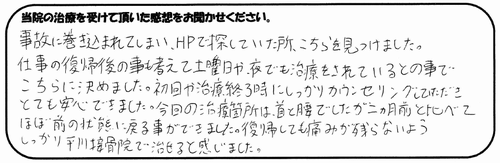 当院の治療を受けて頂いた感想をお聞かせください。
事故に巻き込まれてしまい、HPで探していた所、こちらを見つけました。
仕事の復帰後の事も考えて土曜日や、夜でも治療をされているとの事で
こちらに決めました。初回や治療終了時にしっかりカウンセリングしていただき
とても安心できました。今回の治療箇所は、首と腰でしたが二カ月前と比べて
ほぼ前の状態に戻る事ができました。復帰しても痛みが残らないよう
しっかり平川接骨院で治せると感じました。